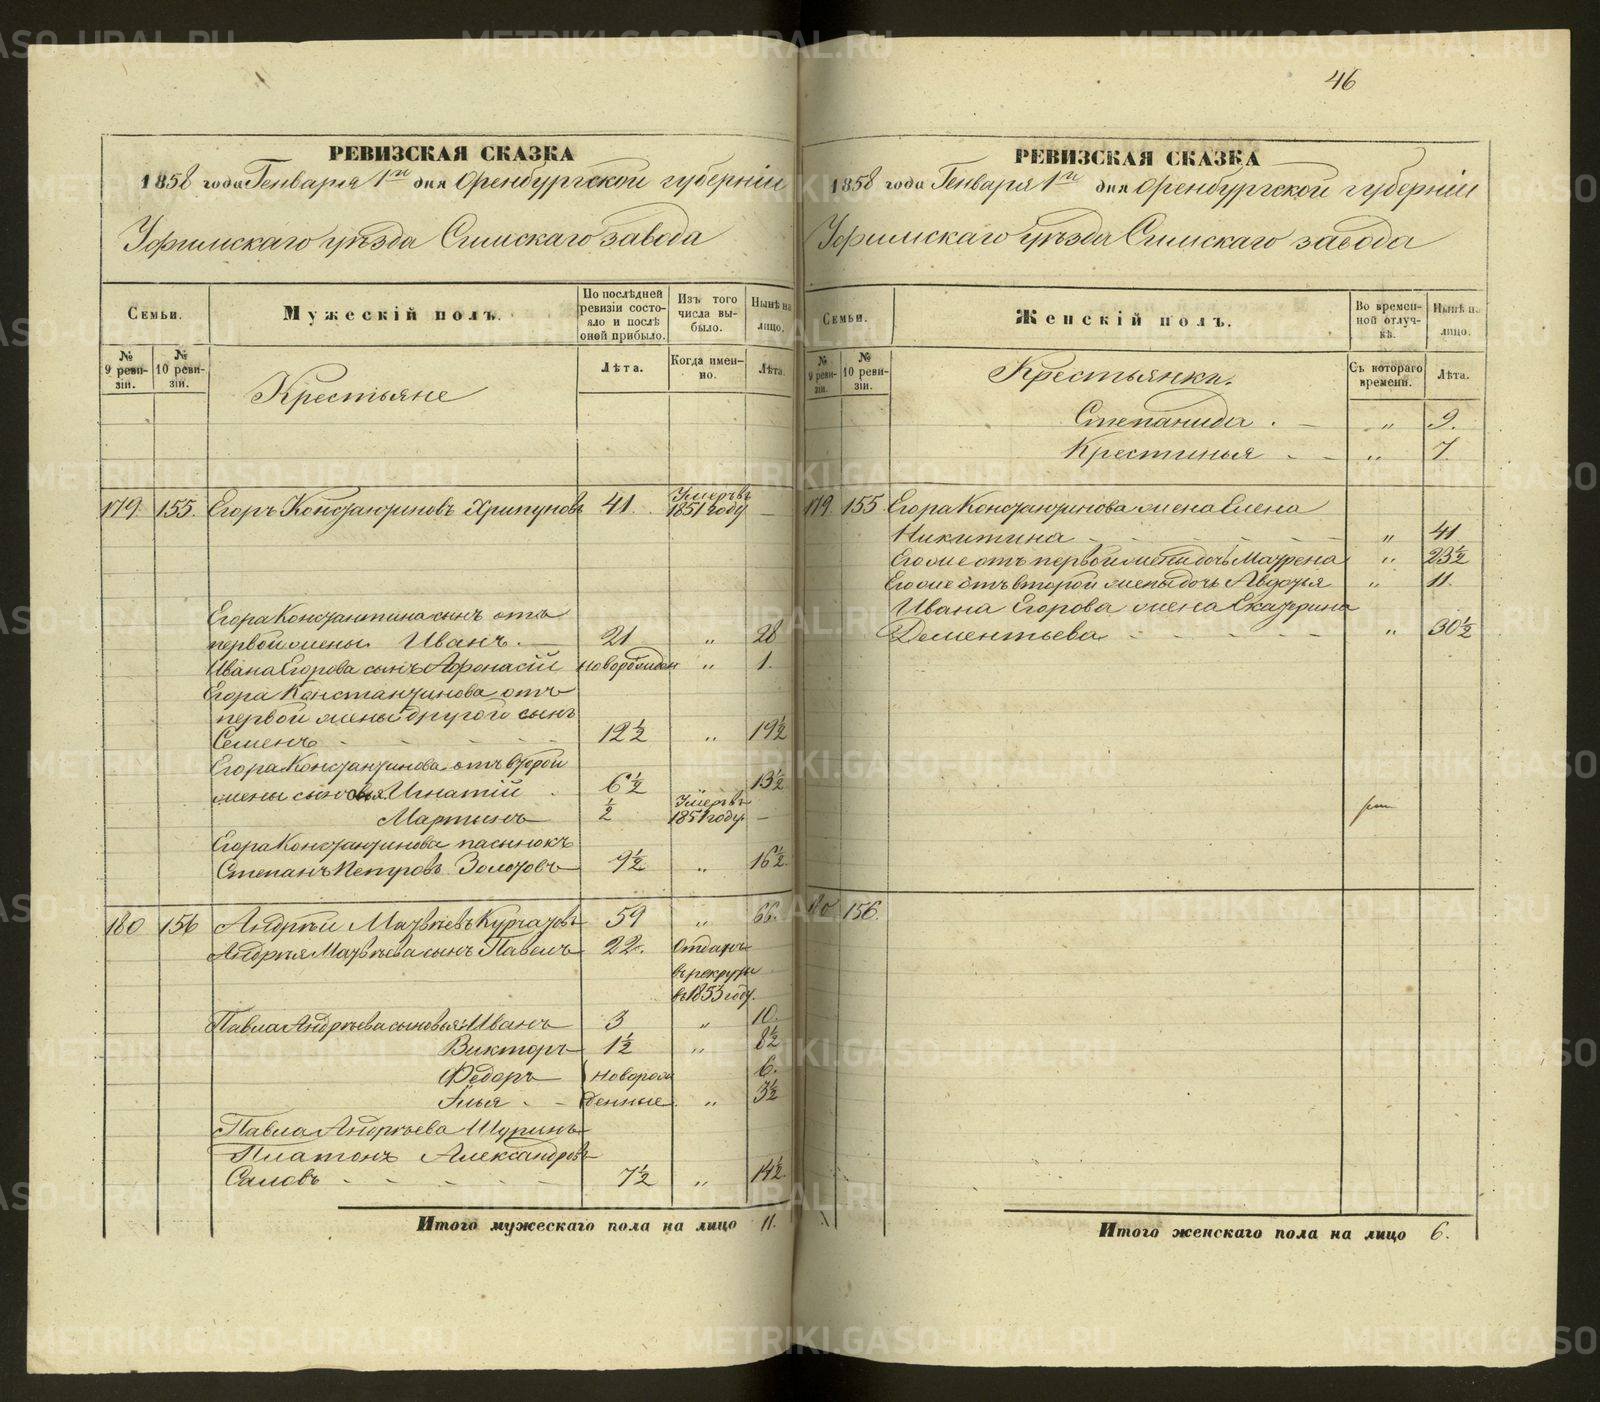 46
РЕВИЗСКАЯ СКАЗКА
1858 года Генваря 1го дня Оренбургской губерніи
Уфимскаго уѣзда Симскаго завода
Семьи.
Мужескій полъ.
По послѣдней ревизіи состояло и послѣ оной прибыло.
Изъ того числа выбыло.
Нынѣ на лицо.
№ 9 ревизіи.
№ 10 ревизіи.
Крестьяне
Лѣта.
Когда именно.
Лѣта.
179. 155. Егоръ Константиновъ Хрипуновъ 41. Умеръ въ 1851 году —
Егора Константина сынъ отъ
первой жены Иванъ. — 21 " 28
Ивана Егорова сынъ Афонасій новорожден " 1.
Егора Константинова отъ
первой жены другой сынъ
Семенъ - - - - 12½ " 19½
Егора Константинова отъ второй
жены сыновья Игнатій . 6½ " 13½
Мартинъ ½ Умеръ въ 1851 году —
Егора Константинова пасынокъ
Степанъ Петровъ Золотовъ 9½ " 16½
180 156 Андрѣй Матвѣевъ Курчатовъ 59 " 66.
Андрѣя Матвѣева сынъ Павелъ 22. Отданъ
въ рекруты
въ 1855 году.
Павла Андрѣева сыновья: Иванъ 3 " 10.
Викторъ 1½ " 8½
Федоръ новорож 6.
Илья - - денные " 3½
Павла Андрѣева Шуринъ
Платонъ Александровъ
Саловъ - - - - 7½ " 14½
Итого мужескаго пола на лицо 11.
РЕВИЗСКАЯ СКАЗКА
1858 года Генваря 1го дня Оренбургской губерніи
Уфимскаго уѣзда Симскаго завода
Семьи.
Женскій полъ.
Во временной отлучкѣ.
Нынѣ на лицо.
№ 9 ревизіи.
№ 10 ревизіи.
Крестьянки.
Съ котораго времени.
Лѣта.
Степанида . — " 9.
Крестинья - — " 7
179. 155 Егора Константинова жена Елена
Никитина - - - - " 41
Его же отъ первой жены дочь Матрена " 23½
Его же отъ второй жены дочь Авдотья " 11.
Ивана Егорова жена Екатерина
Дементьева - - - - " 30½
180. 156.
Итого женскаго пола на лицо 6.
METRIKI.GASO-URAL.RU